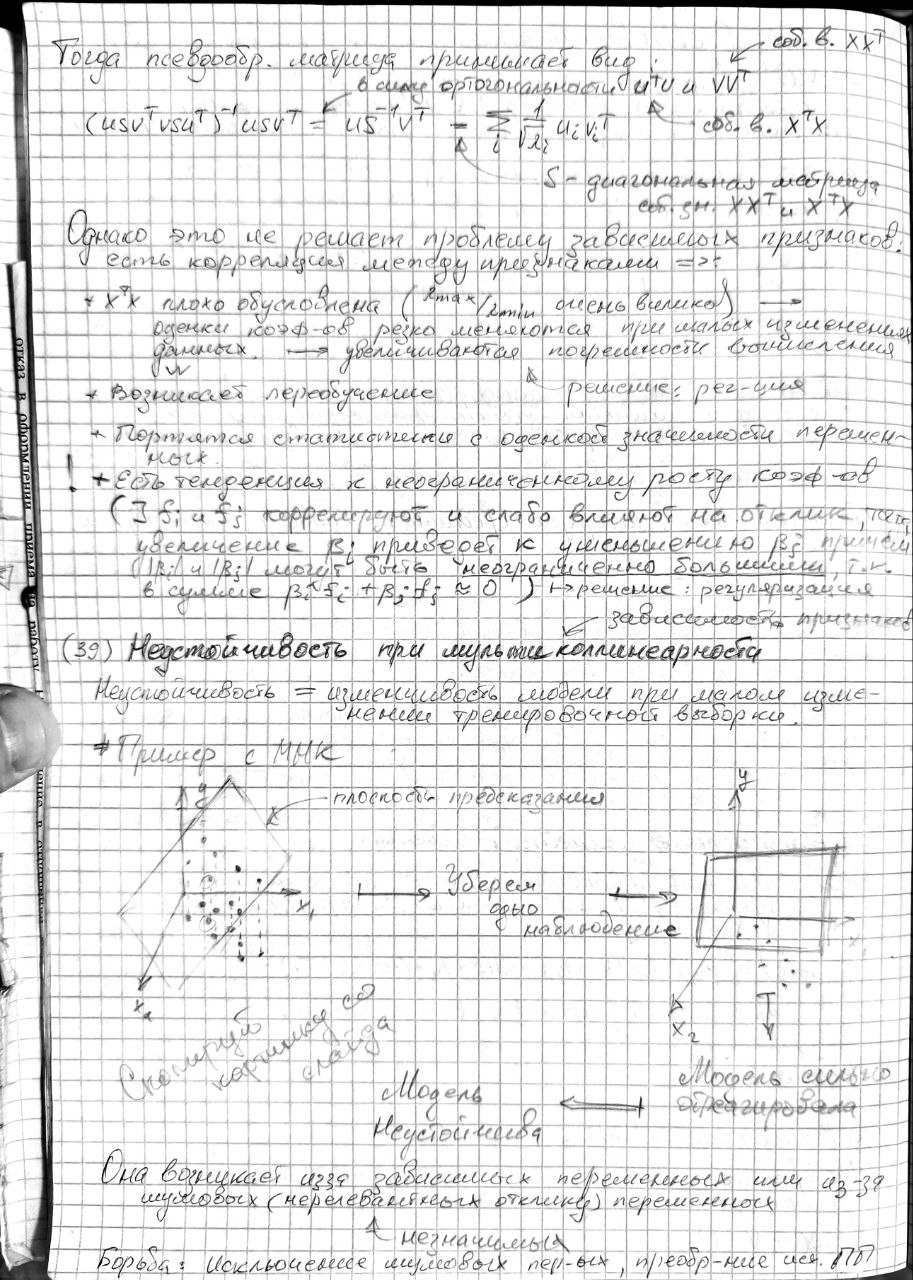 соб. в. XXᵀ
Тогда псевдообр. матрица принимает вид:
в силу ортогональности UᵀU и VVᵀ
(USVᵀVSUᵀ)⁻¹USVᵀ = US⁻¹Vᵀ = Σᵢ 1/√λᵢ uᵢvᵢᵀ соб. в. XᵀX
S - диагональная матрица
соб. зн. XXᵀ и XᵀX
Однако это не решает проблему зависимых признаков.
есть корреляция между признаками =>
+ XᵀX плохо обусловлена (λmax/λmin очень велико) →
оценки коэф-ов резко меняются при малых изменениях
данных. → увеличиваются погрешности вычисления
+ Возникает переобучение решение: рег-ция
+ Портятся статистики с оценкой значимости перемен-
ных.
! + Есть тенденция к неограниченному росту коэф-ов
(] fᵢ и fⱼ коррелируют и слабо влияют на отклик, тогда
увеличение βᵢ приведет к уменьшению βⱼ причем
|βᵢ| и |βⱼ| могут быть неограниченно большими, т.к.
в сумме βᵢfᵢ + βⱼfⱼ ≈ 0) ↦ решение: регуляризация
зависимость признаков
(39) Неустойчивость при мультиколлинеарности
Неустойчивость = изменчивость модели при малом изме-
нении тренировочной выборки.
+ Пример с МНК
y
плоскость предсказания
y
x₁
Уберем
одно
наблюдение
x
x₂
x₂
Скопируй
картинку со
слайда
Модель сильно
отреагировала
Модель
Неустойчива
Она возникает изза зависимых переменных или из-за
шумовых (нерелевантных отклику) переменных
незначимых
Борьба: исключение шумовых пер-ых, преобр-ние исх. ПП
отказ в оформлении приема на работу